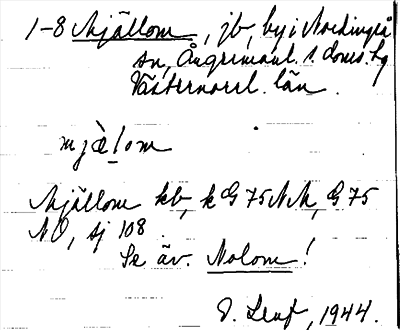 1-8 Mjällom, jb, by i Nordingrå
sn, Ångermanl. s. doms. lg
Västernorrl. län.
mjä̀lom
Mjällom kb, k G 75 NM, G 75
NO, sj 108.
Se äv. Molom!
1944.